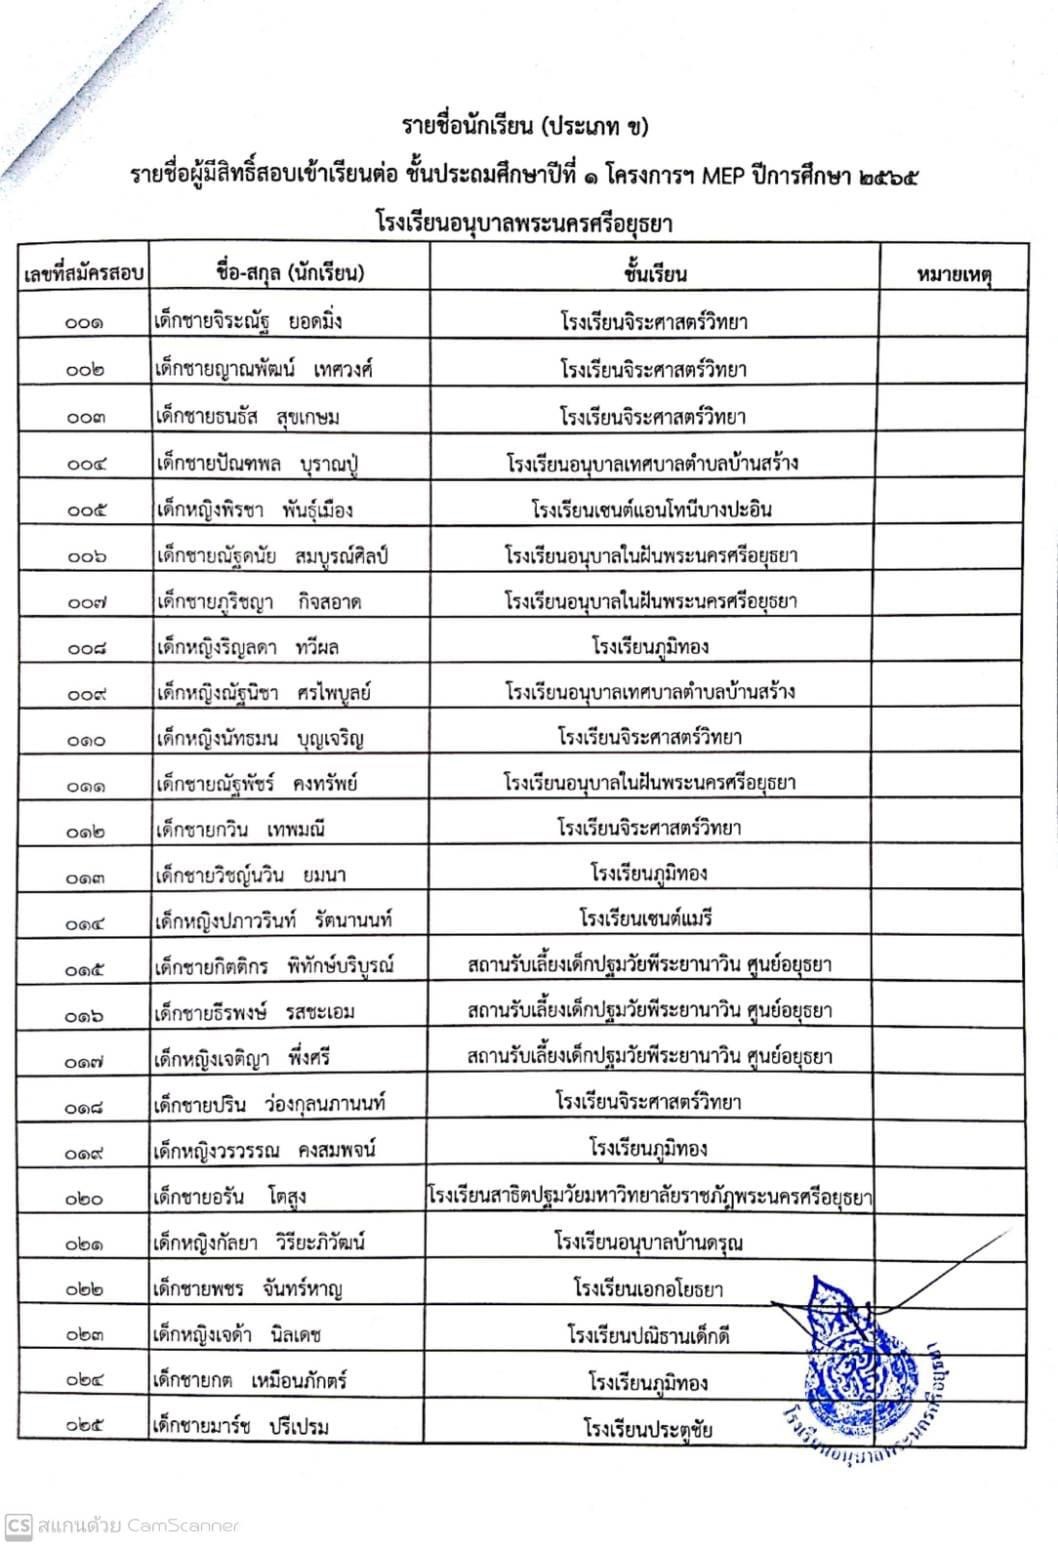 รายชื่อนักเรียน (ประเภท ข)
รายชื่อผู้มีสิทธิ์สอบเข้าเรียนต่อ ชั้นประถมศึกษาปีที่ ๑ โครงการฯ MEP ปีการศึกษา ๒๕๖๕
โรงเรียนอนุบาลพระนครศรีอยุธยา
เลขที่สมัครสอบ ชื่อ-สกุล (นักเรียน) ชั้นเรียน หมายเหตุ
๐๐๑ เด็กชายจิระณัฐ ยอดมิ่ง โรงเรียนจิระศาสตร์วิทยา
๐๐๒ เด็กชายญาณพัฒน์ เทศวงศ์ โรงเรียนจิระศาสตร์วิทยา
๐๐๓ เด็กชายธนธัส สุขเกษม โรงเรียนจิระศาสตร์วิทยา
๐๐๔ เด็กชายปัณฑพล บุราณปู่ โรงเรียนอนุบาลเทศบาลตำบลบ้านสร้าง
๐๐๕ เด็กหญิงพิรชา พันธุ์เมือง โรงเรียนเซนต์แอนโทนีบางปะอิน
๐๐๖ เด็กชายณัฐดนัย สมบูรณ์ศิลป์ โรงเรียนอนุบาลในฝันพระนครศรีอยุธยา
๐๐๗ เด็กชายภูริชญา กิจสอาด โรงเรียนอนุบาลในฝันพระนครศรีอยุธยา
๐๐๘ เด็กหญิงริญลดา ทวีผล โรงเรียนภูมิทอง
๐๐๙ เด็กหญิงณัฐนิชา ศรไพบูลย์ โรงเรียนอนุบาลเทศบาลตำบลบ้านสร้าง
๐๑๐ เด็กหญิงนัทธมน บุญเจริญ โรงเรียนจิระศาสตร์วิทยา
๐๑๑ เด็กชายณัฐพัชร์ คงทรัพย์ โรงเรียนอนุบาลในฝันพระนครศรีอยุธยา
๐๑๒ เด็กชายกวิน เทพมณี โรงเรียนจิระศาสตร์วิทยา
๐๑๓ เด็กชายวิชญ์นวิน ยมนา โรงเรียนภูมิทอง
๐๑๔ เด็กหญิงปภาวรินท์ รัตนานนท์ โรงเรียนเซนต์แมรี
๐๑๕ เด็กชายกิตติกร พิทักษ์บริบูรณ์ สถานรับเลี้ยงเด็กปฐมวัยพีระยานาวิน ศูนย์อยุธยา
๐๑๖ เด็กชายธีรพงษ์ รสชะเอม สถานรับเลี้ยงเด็กปฐมวัยพีระยานาวิน ศูนย์อยุธยา
๐๑๗ เด็กหญิงเจติญา พึ่งศรี สถานรับเลี้ยงเด็กปฐมวัยพีระยานาวิน ศูนย์อยุธยา
๐๑๘ เด็กชายปริน ว่องกุลนภานนท์ โรงเรียนจิระศาสตร์วิทยา
๐๑๙ เด็กหญิงวรวรรณ คงสมพจน์ โรงเรียนภูมิทอง
๐๒๐ เด็กชายอรัน โตสูง โรงเรียนสาธิตปฐมวัยมหาวิทยาลัยราชภัฏพระนครศรีอยุธยา
๐๒๑ เด็กหญิงกัลยา วิริยะภิวัฒน์ โรงเรียนอนุบาลบ้านดรุณ
๐๒๒ เด็กชายพชร จันทร์หาญ โรงเรียนเอกอโยธยา
๐๒๓ เด็กหญิงเจด้า นิลเดช โรงเรียนปณิธานเด็กดี
๐๒๔ เด็กชายกต เหมือนภักตร์ โรงเรียนภูมิทอง
๐๒๕ เด็กชายมาร์ช ปรีเปรม โรงเรียนประตูชัย
โรงเรียนอนุบาลพระนครศรีอยุธยา
CS สแกนด้วย CamScanner